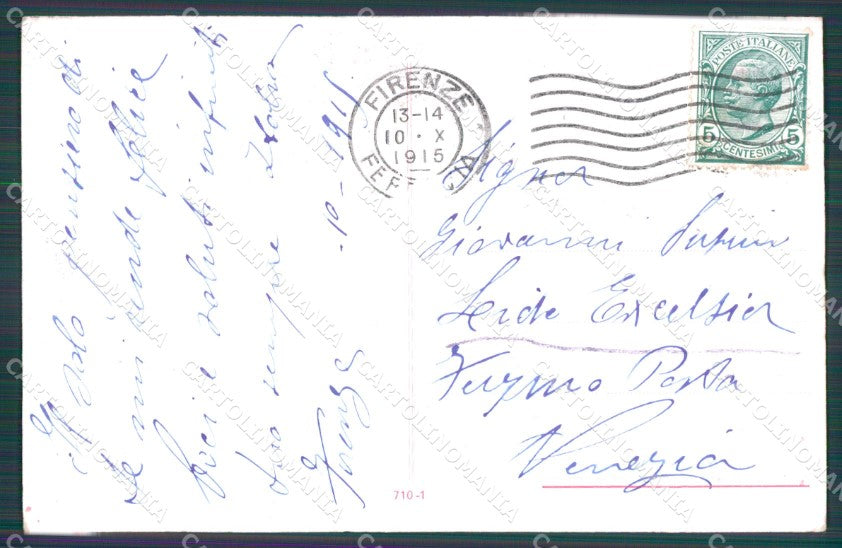 Il solo pensiero di
te mi rende felice
Baci e saluti infiniti
tuo sempre
Firenze 10-1915
FIRENZE
13-14
10 · X
1915
POSTE ITALIANE
5 5
CENTESIMI
Signor
Giovanni
Excelsior
Fermo Posta
Venezia
710-1
CARTOLINOMANIA